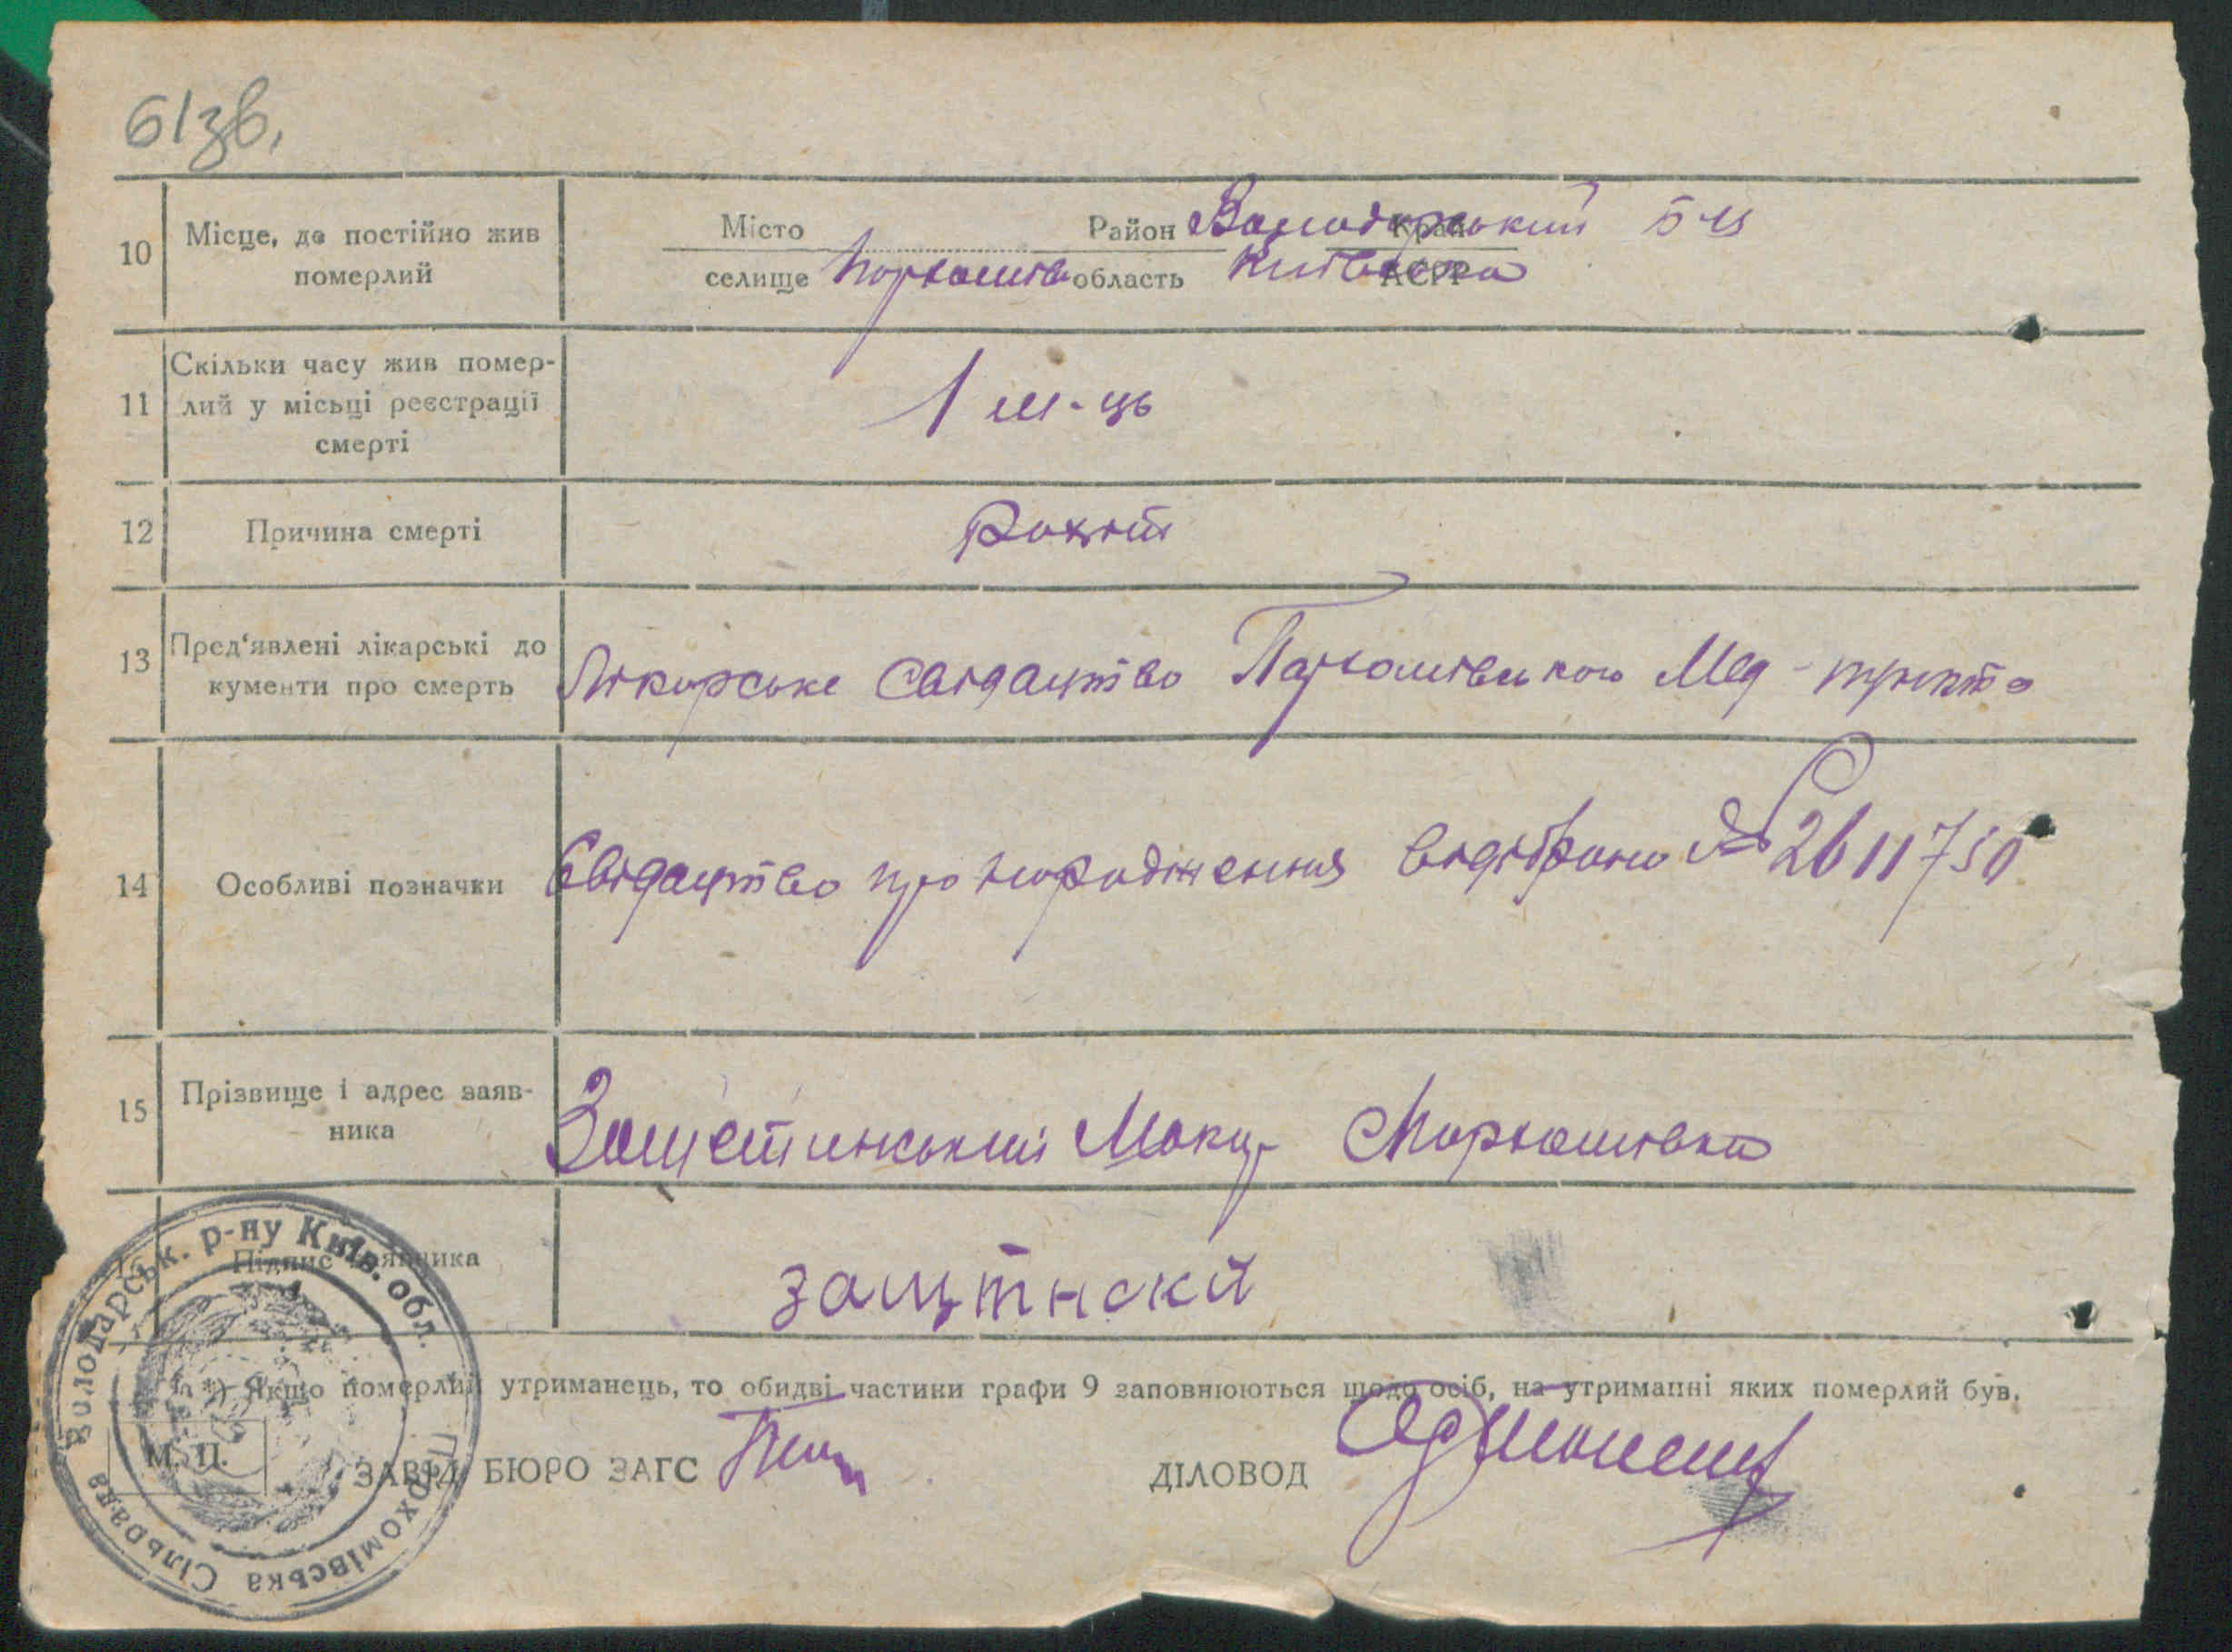 61зв.
10 Місце, де постійно жив померлий
Місто Район Володарський край
селище Пархомівка область Київська АСРР
11 Скільки часу жив помер-
лий у місьці реєстрації
смерті
1 м-ць
12 Причина смерті Рахіт
13 Пред'явлені лікарські до
кументи про смерть
Лікарське свідацтво Пархомівського Мед-пункта
14 Особливі позначки Свідацтво про народження відібрано №
15 Прізвище і адрес заяв-
ника
Макар Пархомівка
Підпис заявника
*) Якщо померлий утриманець, то обидві частини графи 9 заповнюються щодо осіб, на утриманні яких померлий був.
М. П.
ЗАВІД. БЮРО ЗАГС ДІЛОВОД
Володарськ. р-ну Київ. обл.
Пархомівська Сільрада